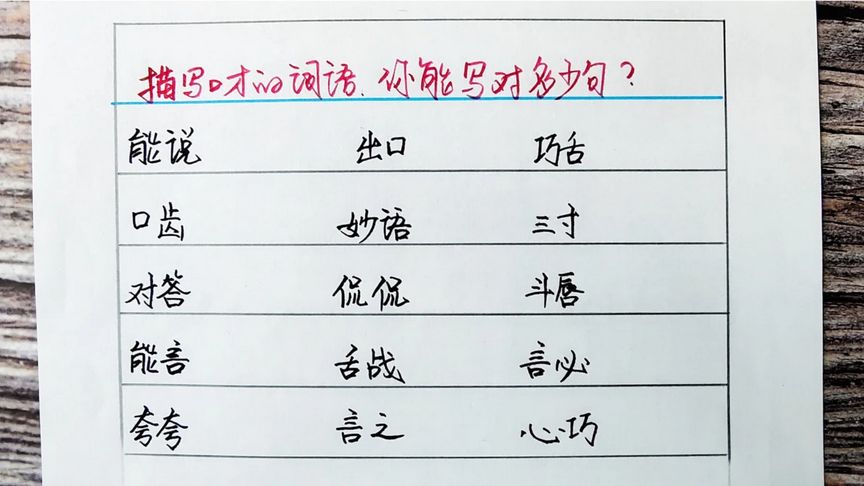 描写口才的词语、你能写对多少句？
能说 出口 巧舌
口齿 妙语 三寸
对答 侃侃 斗唇
能言 舌战 言必
夸夸 言之 心巧